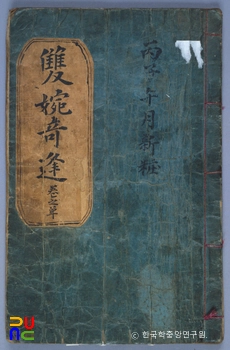 丙子午月新粧
雙婉奇逢
ⓒ 한국학중앙연구원